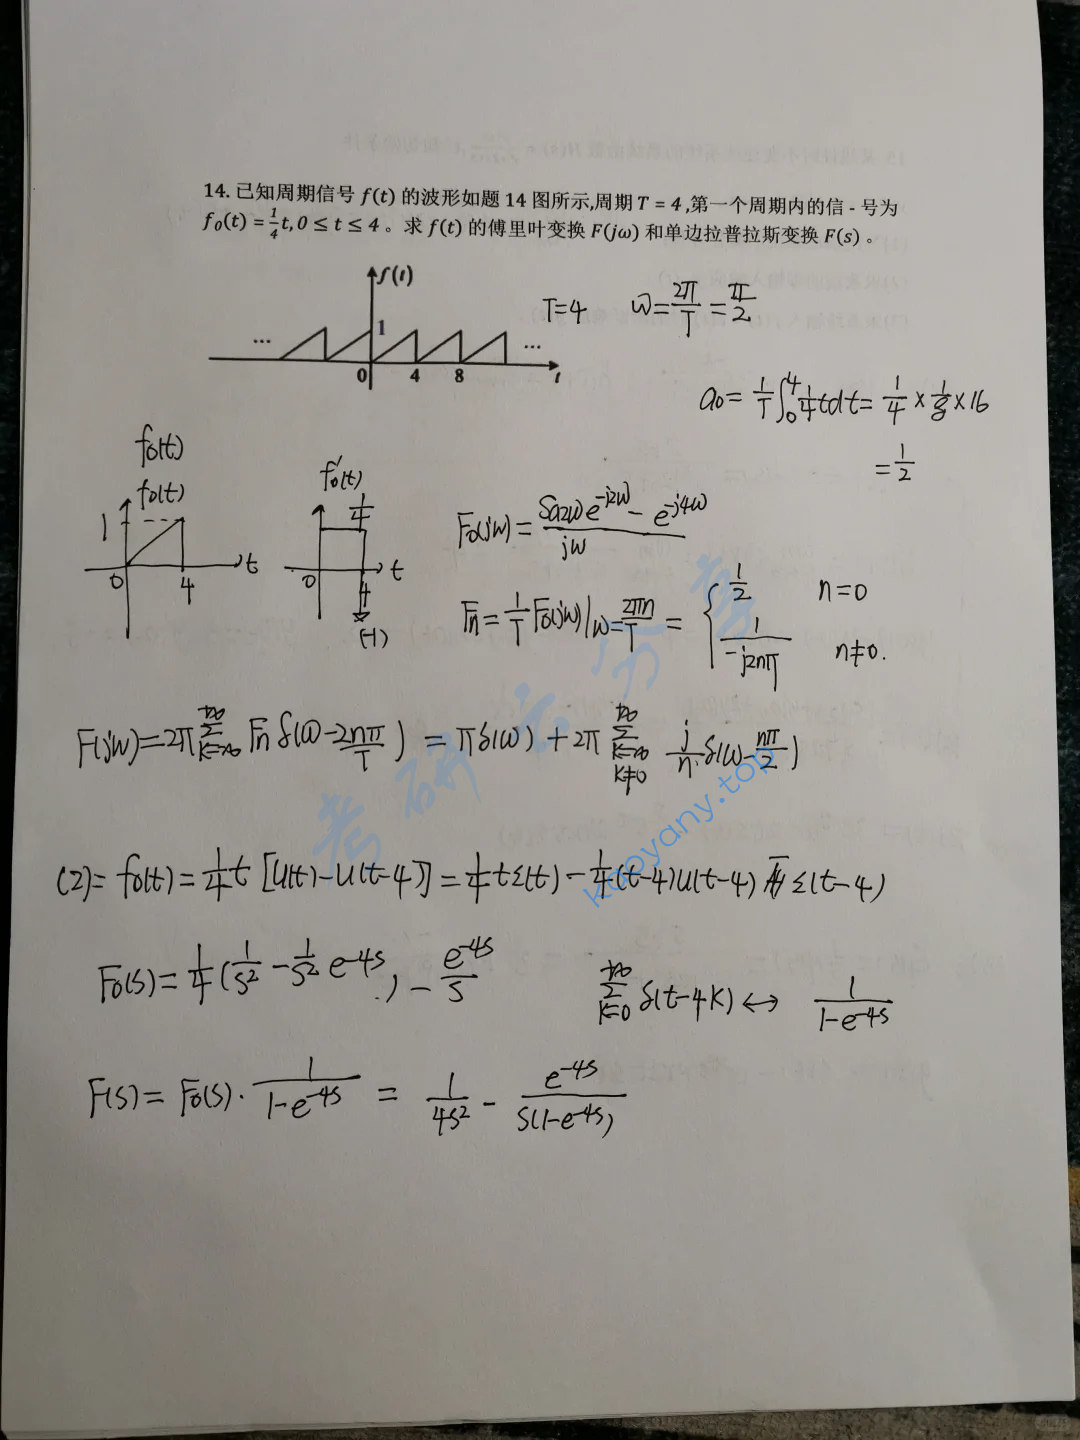 14. 已知周期信号 f(t) 的波形如题 14 图所示,周期 T = 4 ,第一个周期内的信 - 号为
f₀(t) = 1/4 t, 0 ≤ t ≤ 4 。求 f(t) 的傅里叶变换 F(jω) 和单边拉普拉斯变换 F(s) 。
f(t)
1
... ...
0 4 8 t
T=4 ω=2π/T=π/2
a₀= 1/T ∫₀⁴ 1/4 t dt= 1/4 × 1/8 × 16
= 1/2
f₀(t)
f₀(t)
1
0 4 t
f₀'(t)
1/4
0 4 t
(-1)
F₀(jω)= (Sa2ω e^(-j2ω) - e^(-j4ω))/(jω)
Fn= 1/T F₀(jω)|ω=2πn/T = { 1/2 n=0
1/(-j2nπ) n≠0.
F(jω)=2π Σ(k=-∞ → +∞) Fn δ(ω-2nπ/T) = πδ(ω) + 2π Σ(k=-∞, k≠0 → +∞) j/n δ(ω-nπ/2)
(2)= f₀(t) = 1/4 t [u(t)-u(t-4)] = 1/4 t ε(t) - 1/4 (t-4)u(t-4) ε(t-4)
F₀(s)= 1/4 (1/s² - 1/s² e^(-4s)) - e^(-4s)/s
Σ(k=0 → +∞) δ(t-4k) ↔ 1/(1-e^(-4s))
F(s)= F₀(s) · 1/(1-e^(-4s)) = 1/(4s²) - e^(-4s)/(s(1-e^(-4s)))
考研云分享
kaoyany.top